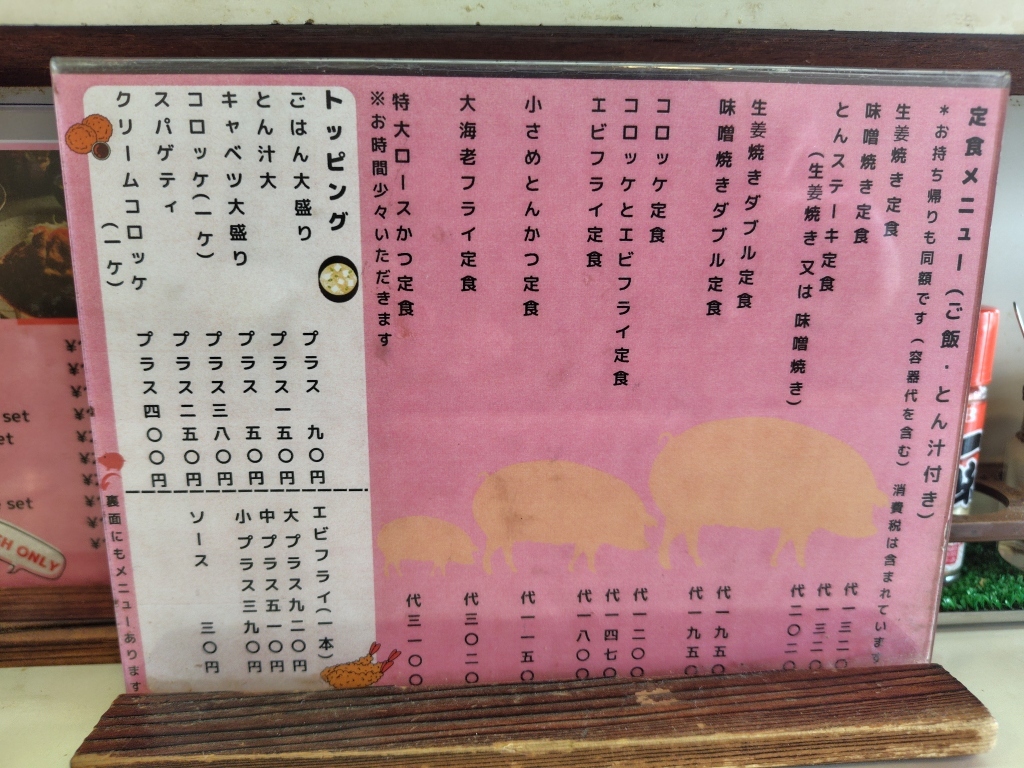 定食メニュー（ご飯・とん汁付き）
＊お持ち帰りも同額です（容器代を含む）消費税は含まれています
生姜焼き定食 代一三二〇
味噌焼き定食 代一三二〇
とんステーキ定食 代二〇二〇
（生姜焼き又は味噌焼き）
生姜焼きダブル定食 代一九五〇
味噌焼きダブル定食 代一九五〇
コロッケ定食 代一二〇〇
コロッケとエビフライ定食 代一四七〇
エビフライ定食 代一八〇〇
小さめとんかつ定食 代一一五〇
大海老フライ定食 代三〇二〇
特大ロースかつ定食 代三一〇〇
※お時間少々いただきます
トッピング
ごはん大盛り プラス 九〇円
とん汁大 プラス一五〇円
キャベツ大盛り プラス 五〇円
コロッケ（一ケ） プラス三八〇円
スパゲティ プラス二五〇円
クリームコロッケ プラス四〇〇円
（一ケ）
エビフライ（一本）
大 プラス九二〇円
中プラス五一〇円
小プラス三九〇円
ソース 三〇円
裏面にもメニューあります
set
set
ONLY